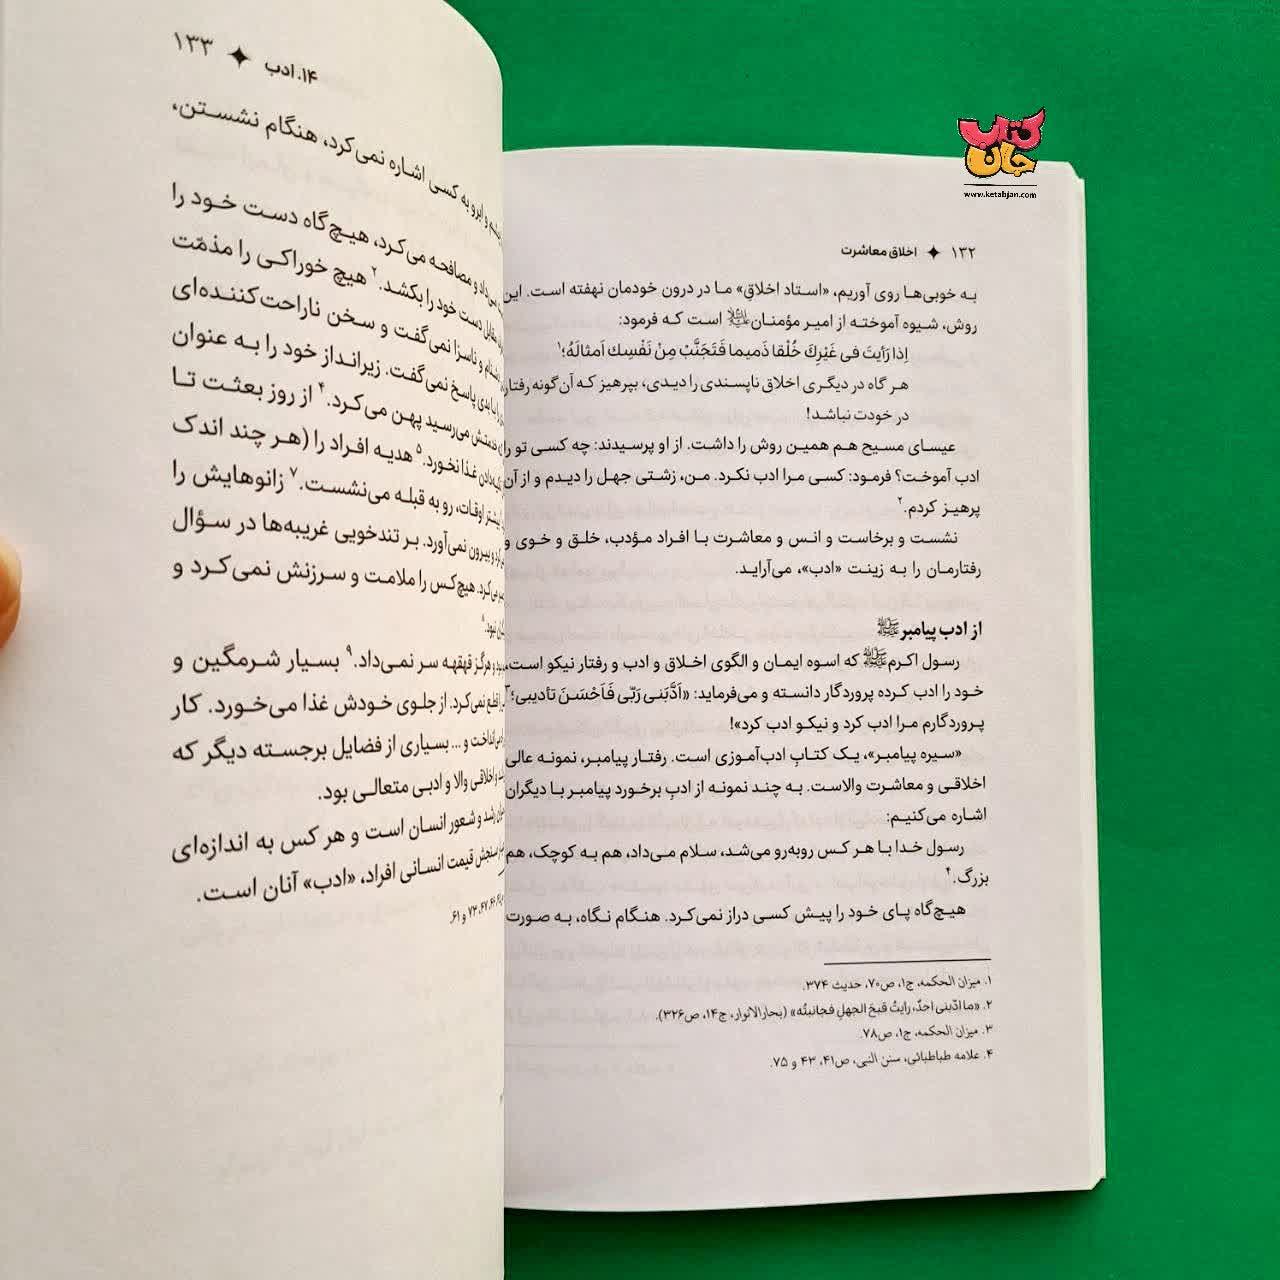 کتاب
جان
www.ketabjan.com
۱۳۲ ✦ اخلاق معاشرت
به خوبی‌ها روی آوریم، «استاد اخلاقِ» ما در درون خودمان نهفته است. این
روش، شیوه آموخته از امیر مؤمنان است که فرمود:
إذا رَأیتَ فی غَیْرِكَ خُلْقا ذَمیما فَتَجَنَّبْ مِنْ نَفْسِكَ اَمثالَهُ؛۱
هر گاه در دیگری اخلاق ناپسندی را دیدی، بپرهیز که آن گونه رفتار
در خودت نباشد!
عیسای مسیح هم همین روش را داشت. از او پرسیدند: چه کسی تو را
ادب آموخت؟ فرمود: کسی مرا ادب نکرد. من، زشتی جهل را دیدم و از آن
پرهیز کردم.۲
نشست و برخاست و انس و معاشرت با افراد مؤدب، خلق و خوی و
رفتارمان را به زینت «ادب»، می‌آراید.
از ادب پیامبرﷺ
رسول اکرمﷺ که اسوه ایمان و الگوی اخلاق و ادب و رفتار نیکو است،
خود را ادب کرده پروردگار دانسته و می‌فرماید: «اَدَّبَنی رَبّی فَاَحْسَنَ تأدیبی؛۳
پروردگارم مرا ادب کرد و نیکو ادب کرد»!
«سیره پیامبر»، یک کتابِ ادب‌آموزی است. رفتار پیامبر، نمونه عالی
اخلاقی و معاشرت والاست. به چند نمونه از ادبِ برخورد پیامبر با دیگران
اشاره می‌کنیم:
رسول خدا با هر کس روبه‌رو می‌شد، سلام می‌داد، هم به کوچک، هم
بزرگ.۴
هیچ‌گاه پای خود را پیش کسی دراز نمی‌کرد. هنگام نگاه، به صورت
۱. میزان الحکمه، ج۱، ص۷۰، حدیث ۳۷۴.
۲. «ما ادّبنی احدٌ، رایتُ قبحَ الجهلِ فجانبتُه» (بحارالانوار، ج۱۴، ص۳۲۶).
۳. میزان الحکمه، ج۱، ص۷۸.
۴. علامه طباطبائی، سنن النبی، ص۴۱، ۴۳ و ۷۵.
۱۴. ادب ✦ ۱۳۳
و ابرو به کسی اشاره نمی‌کرد، هنگام نشستن،
می‌داد و مصافحه می‌کرد، هیچ‌گاه دست خود را
مقابل دست خود را بکشد.۲ هیچ خوراکی را مذمّت
و ناسزا نمی‌گفت و سخن ناراحت‌کننده‌ای
را با بدی پاسخ نمی‌گفت. زیرانداز خود را به عنوان
خدمتش می‌رسید پهن می‌کرد.۴ از روز بعثت تا
غذا نخورد.۵ هدیه افراد را (هر چند اندک
بیشتر اوقات، رو به قبله می‌نشست.۷ زانوهایش را
و بیرون نمی‌آورد. بر تندخویی غریبه‌ها در سؤال
می‌کرد. هیچ‌کس را ملامت و سرزنش نمی‌کرد و
نبود.۸
و هرگز قهقهه سر نمی‌داد.۹ بسیار شرمگین و
را قطع نمی‌کرد. از جلوی خودش غذا می‌خورد. کار
و ... بسیاری از فضایل برجسته دیگر که
و اخلاقی والا و ادبی متعالی بود.
رشد و شعور انسان است و هر کس به اندازه‌ای
سنجش قیمت انسانی افراد، «ادب» آنان است.
۴۷، ۷۳ و ۶۱.